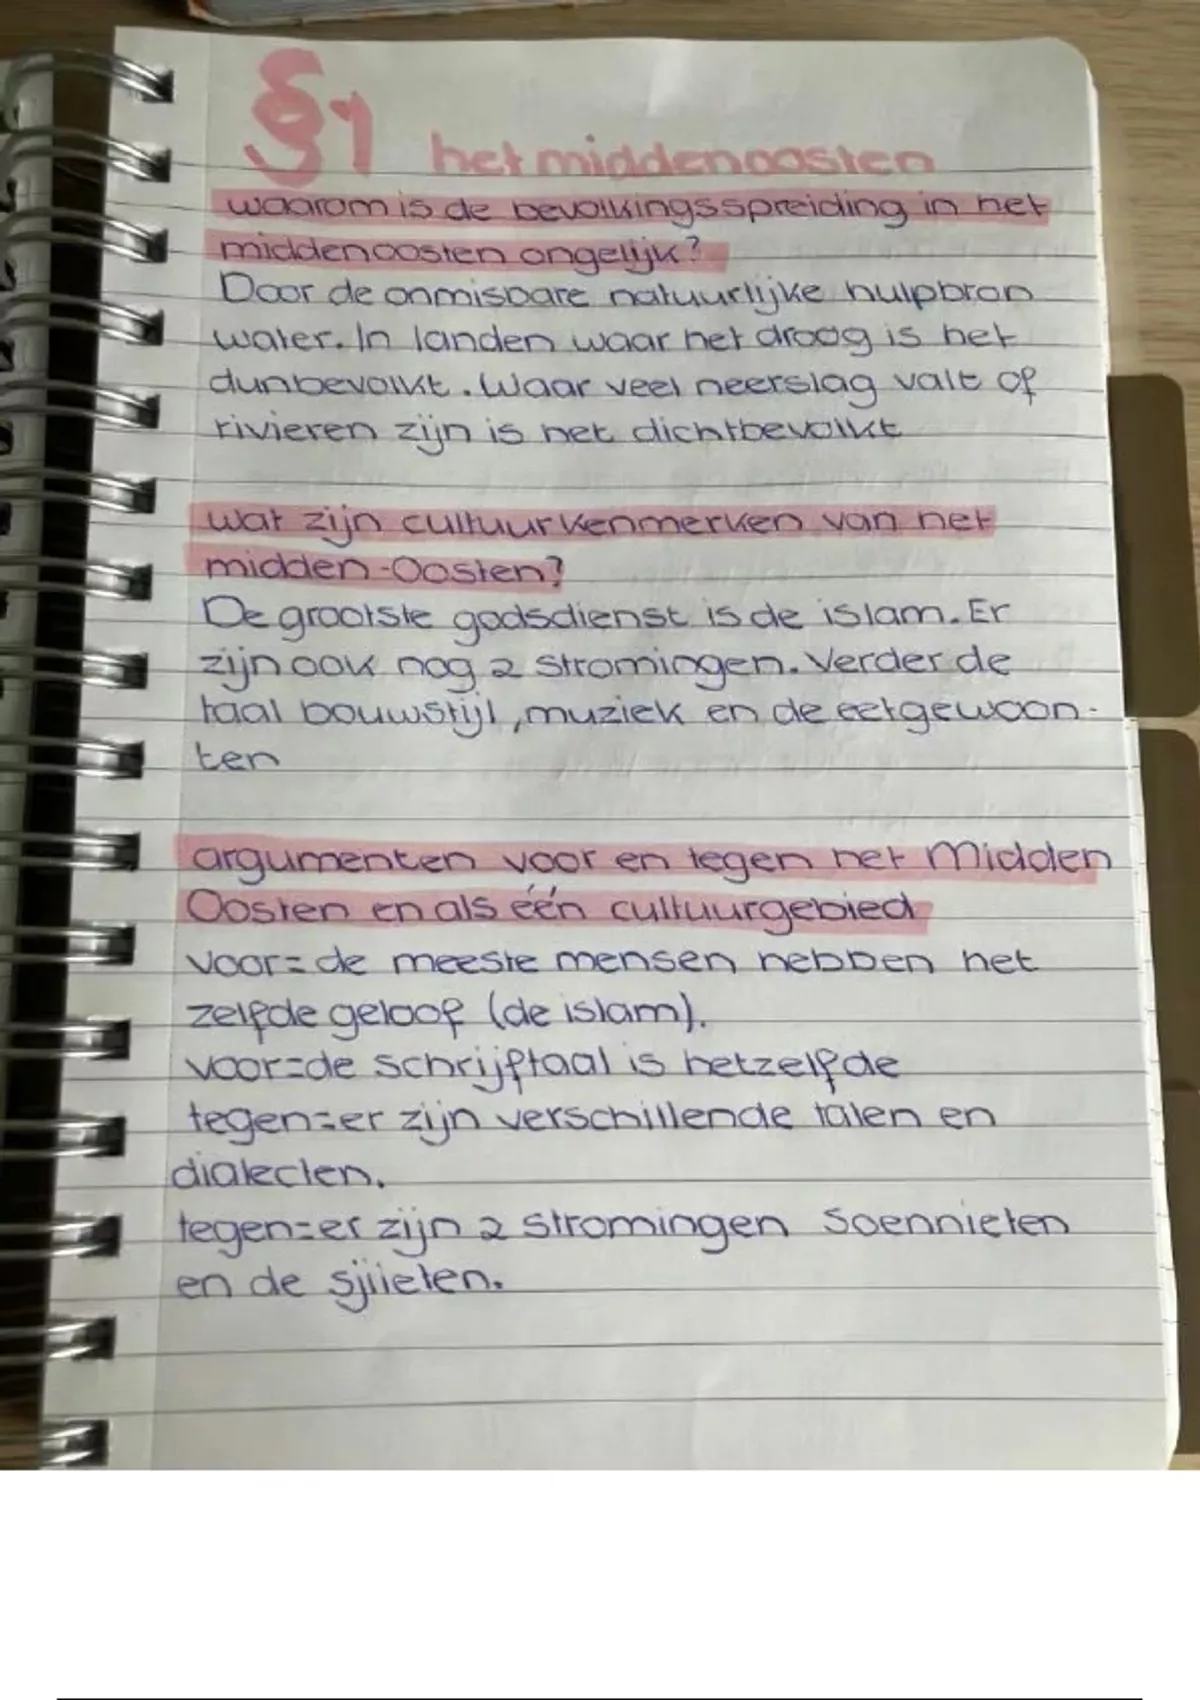 §1 het middenoosten
waarom is de bevolkingsspreiding in het
middenoosten ongelijk?
Door de onmisbare natuurlijke hulpbron
water. In landen waar het droog is het
dunbevolkt. Waar veel neerslag valt of
rivieren zijn is het dichtbevolkt
wat zijn cultuurkenmerken van het
midden-Oosten?
De grootste godsdienst is de islam. Er
zijn ook nog 2 stromingen. Verder de
taal bouwstijl, muziek en de eetgewoon-
ten
argumenten voor en tegen het Midden
Oosten en als één cultuurgebied
voor= de meeste mensen hebben het
zelfde geloof (de islam).
voor=de schrijftaal is hetzelfde
tegen=er zijn verschillende talen en
dialecten.
tegen=er zijn 2 stromingen Soennieten
en de sjiieten.